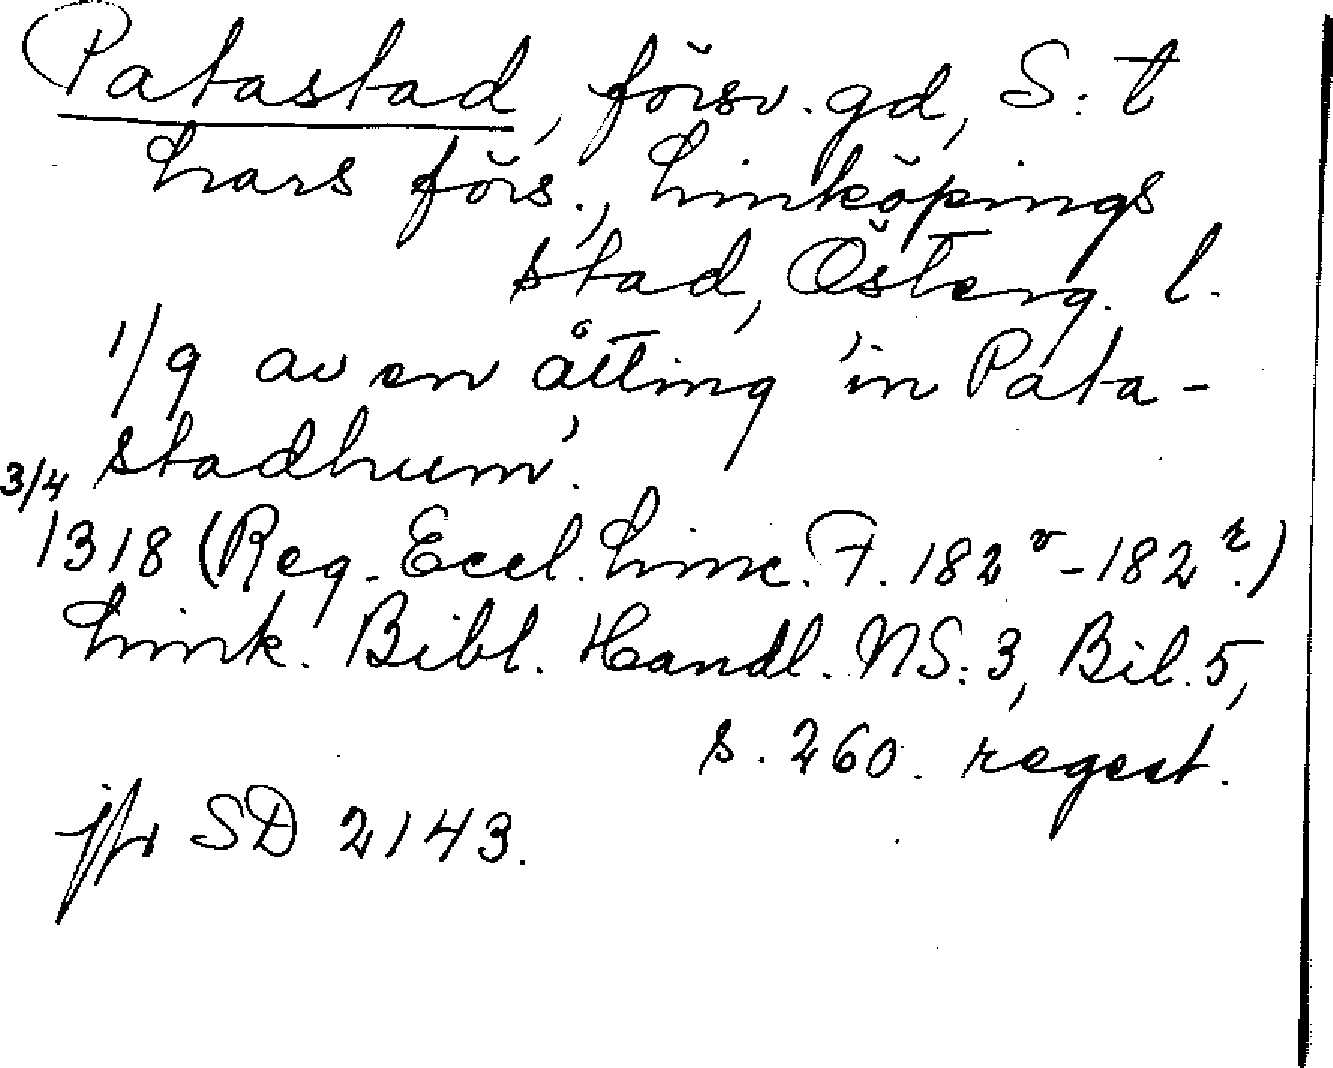 Patastad, försv. gd, S:t
Lars förs., Linköpings
stad, Österg. l.
1/9 av en åtting 'in Pata-
stadhum'.
3/4
1318 (Reg. Eccl. Linc. F. 182 v - 182 r.)
Link. Bibl. Handl. NS:3, Bil. 5,
s. 260. regest.
jfr SD 2143.